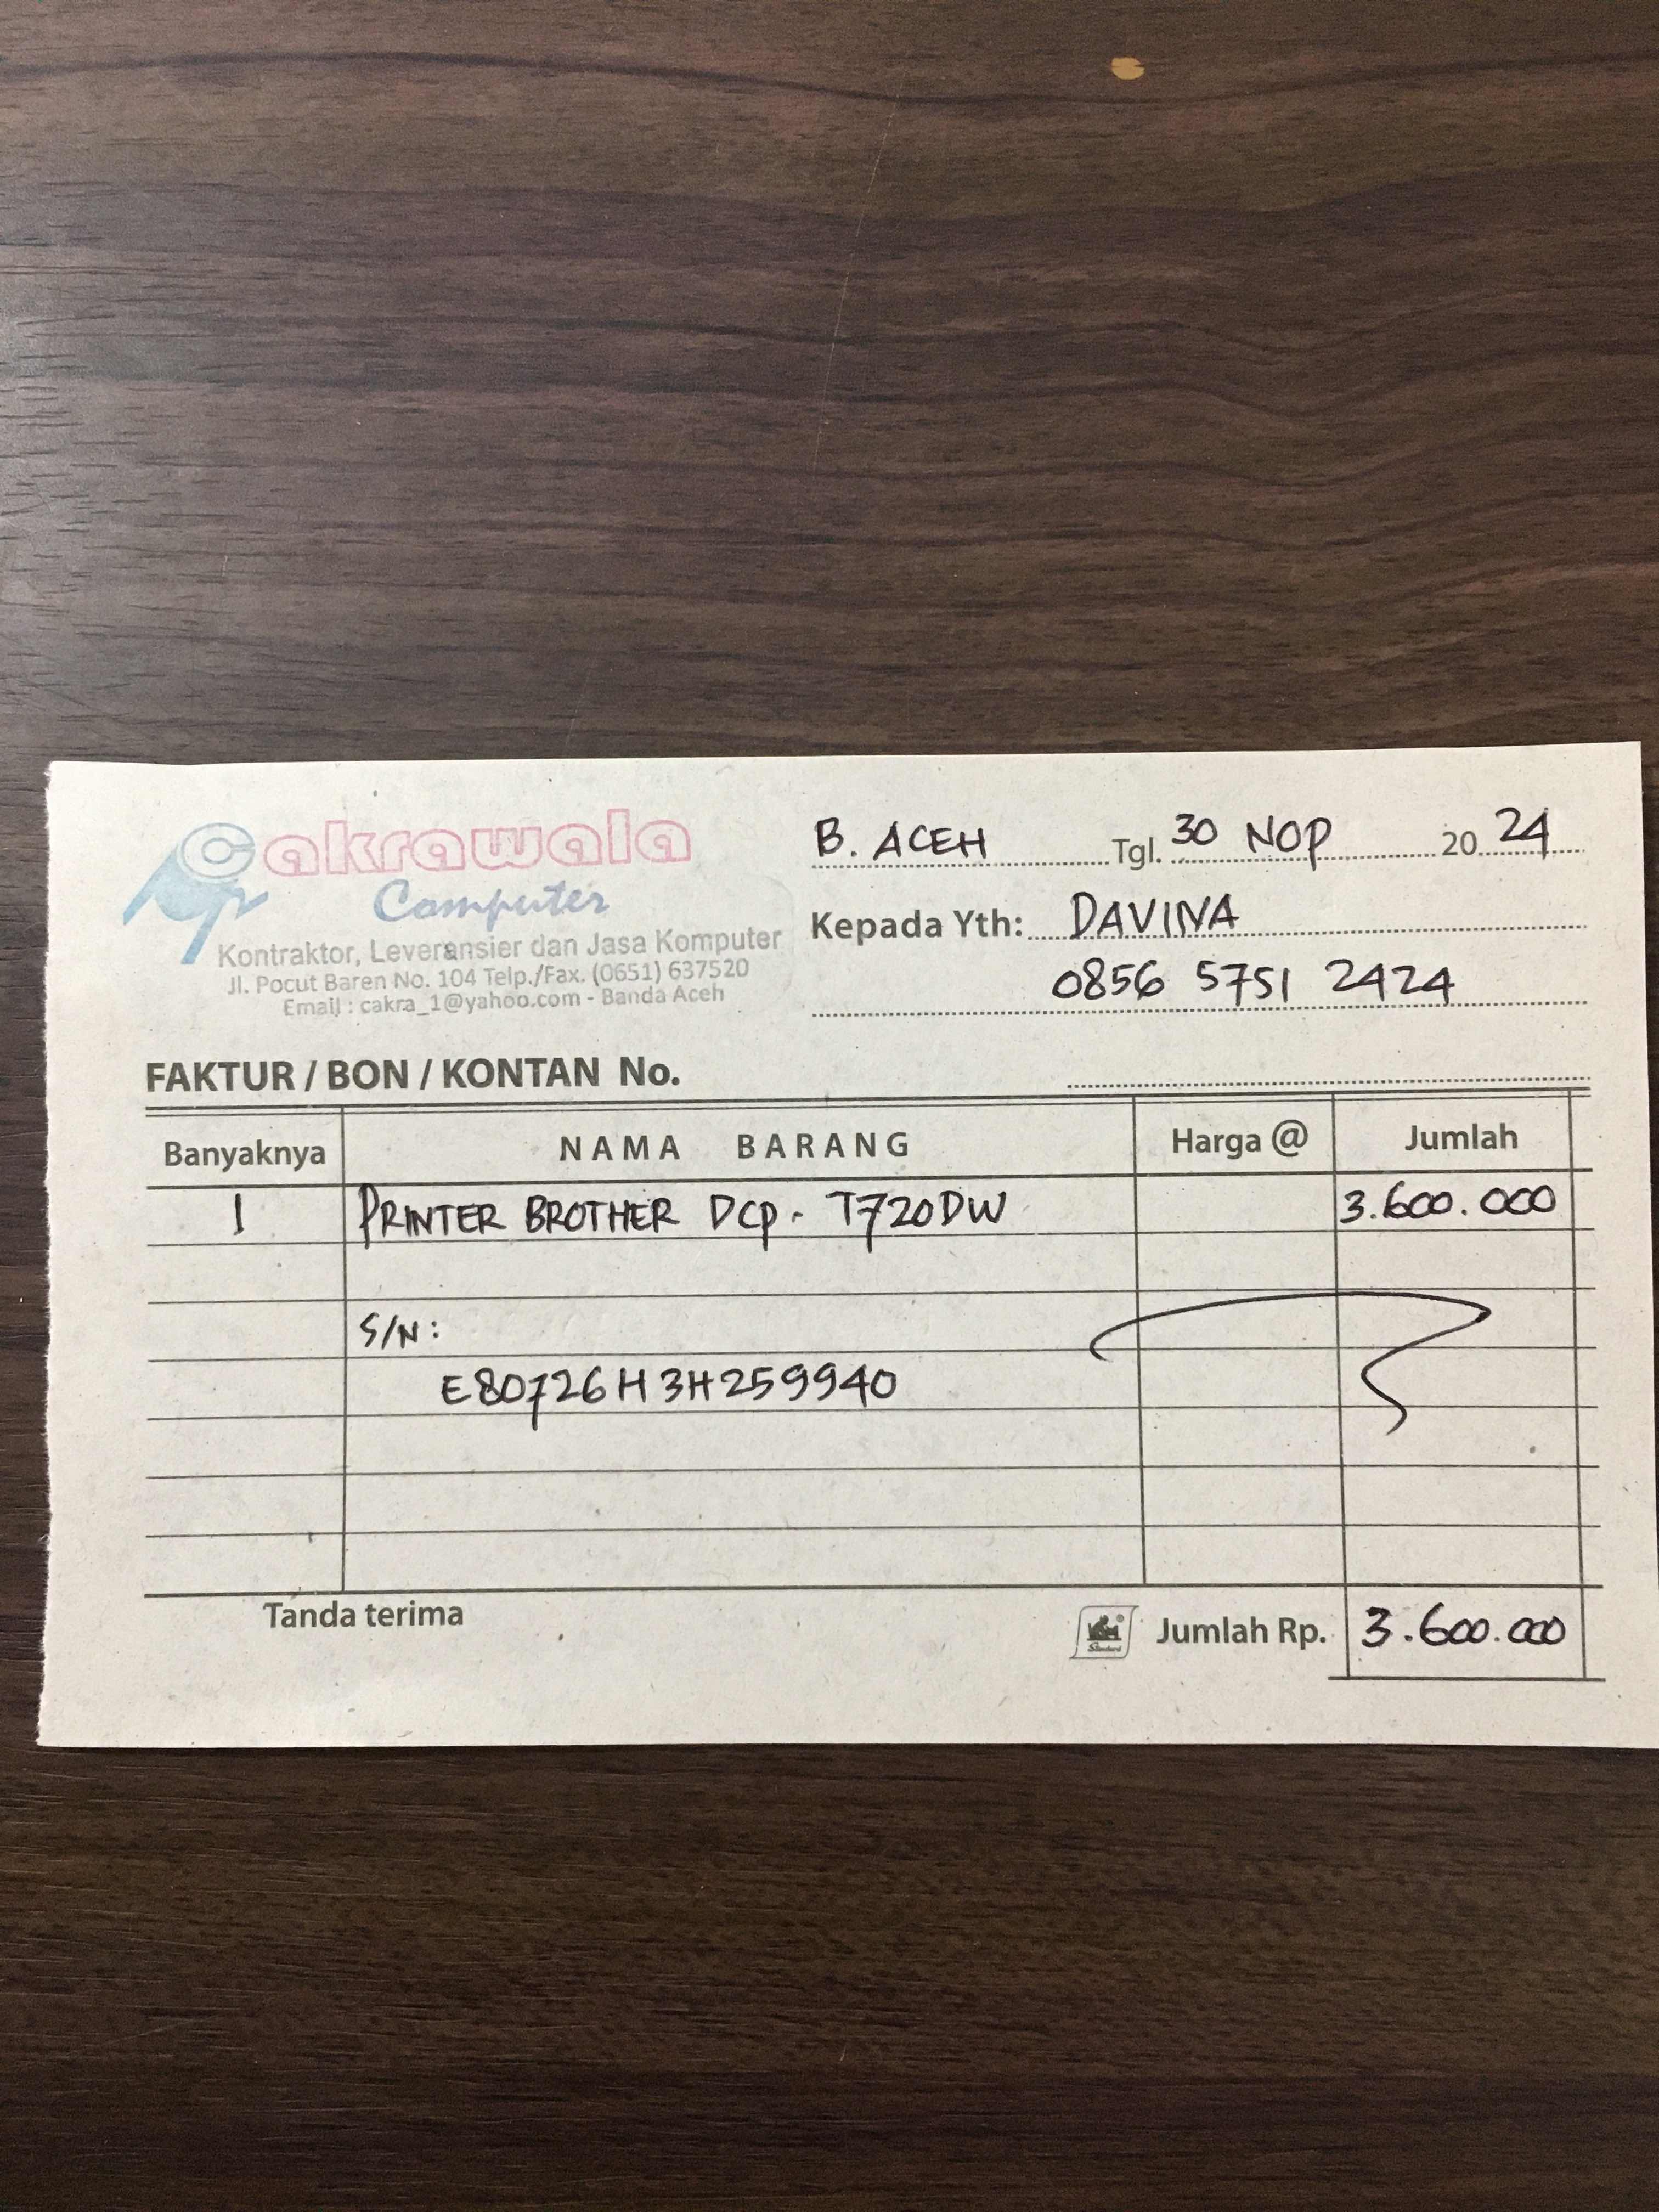 Cakrawala
Computer
Kontraktor, Leveransier dan Jasa Komputer
Jl. Pocut Baren No. 104 Telp./Fax. (0651) 637520
Email : cakra_1@yahoo.com - Banda Aceh
B. ACEH Tgl. 30 NOP 20 24
Kepada Yth: DAVINA
0856 5751 2424
FAKTUR / BON / KONTAN No.
Banyaknya NAMA BARANG Harga @ Jumlah
1 PRINTER BROTHER DCP - T720DW 3.600.000
S/N:
E80726H3H259940
Tanda terima Standard Jumlah Rp. 3.600.000